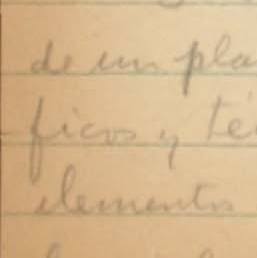 de un pla
ficos y té
elementos